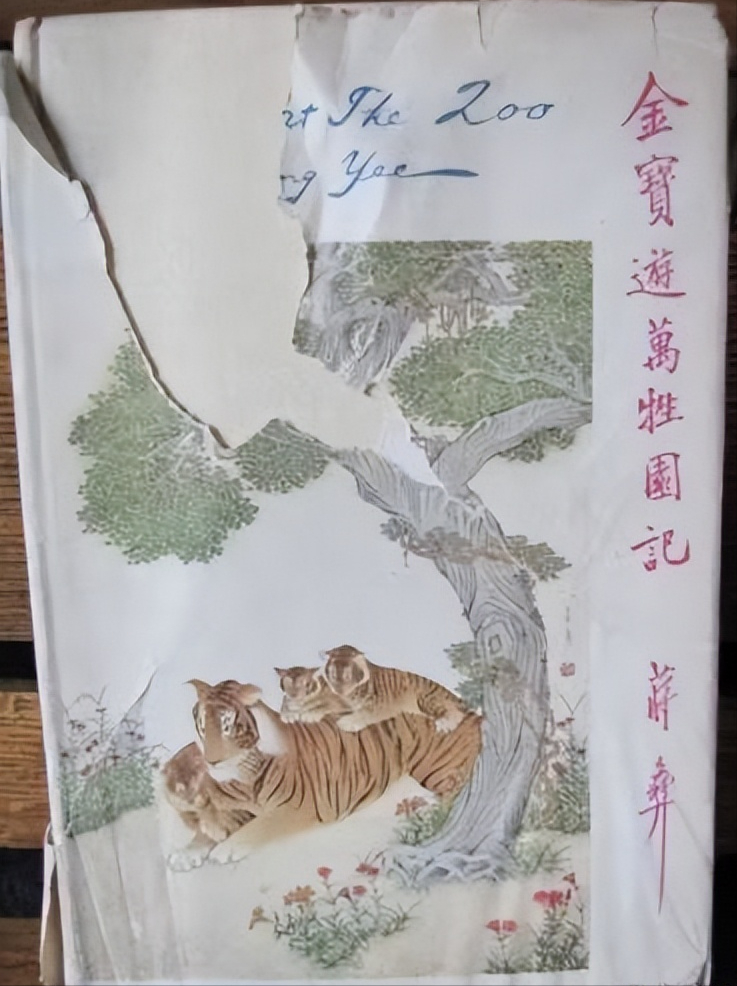 at The Zoo
ng Yee
金寶遊萬牲園記
蔣彝